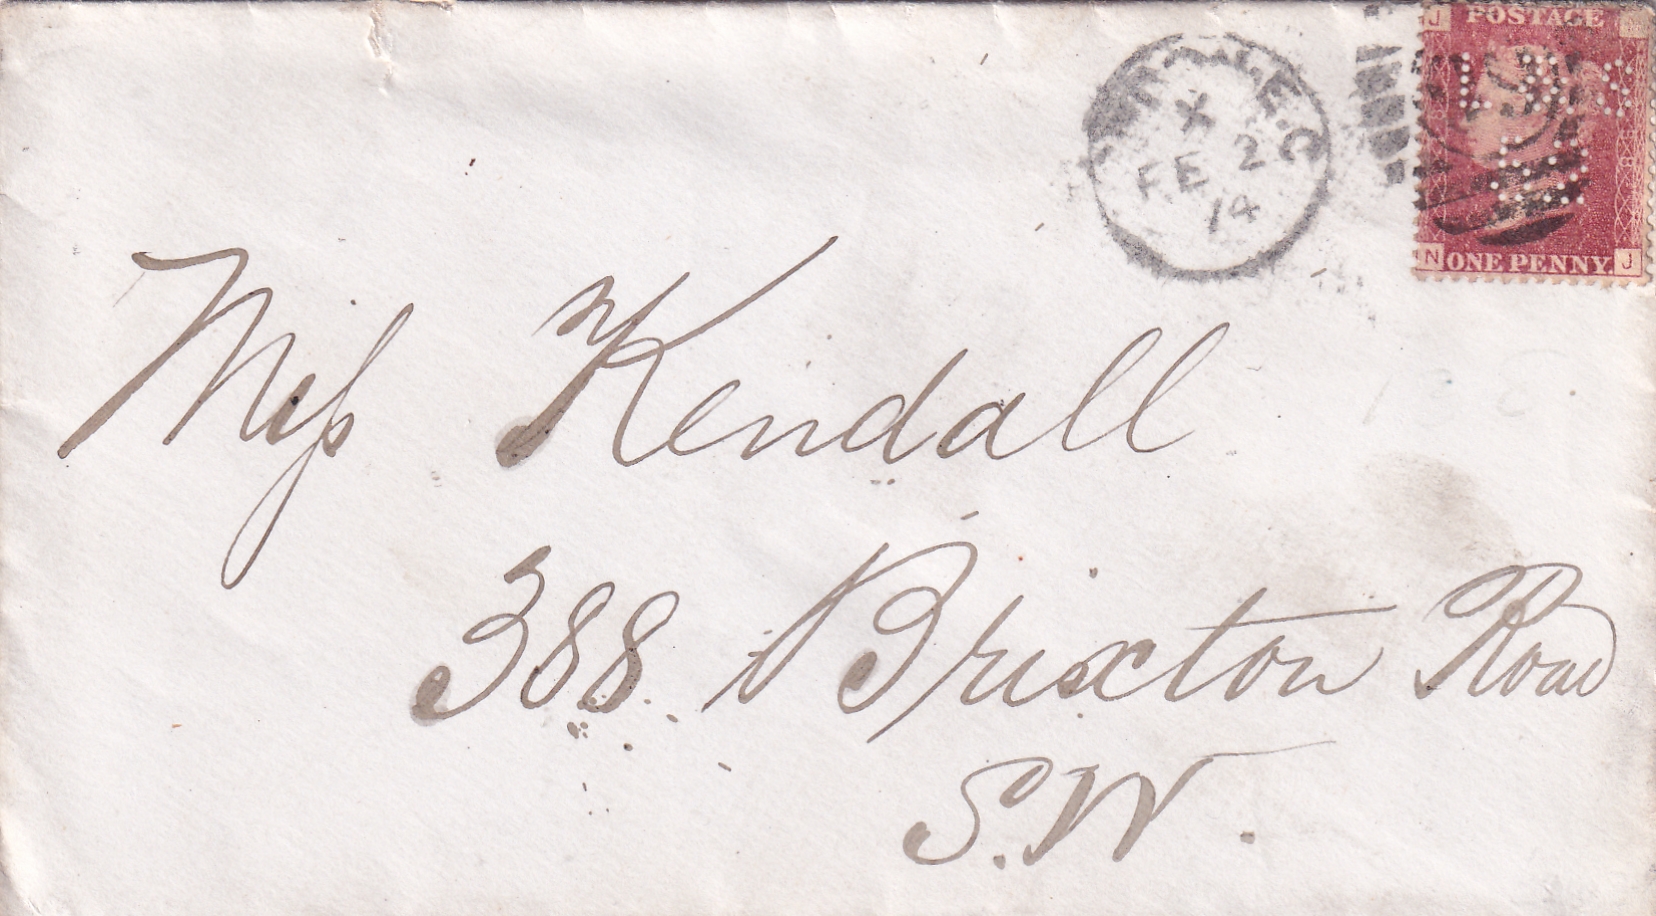 J POSTAGE
X
FE 2
74
N ONE PENNY. J
Miss Kendall
388 Brixton Road
S.W.